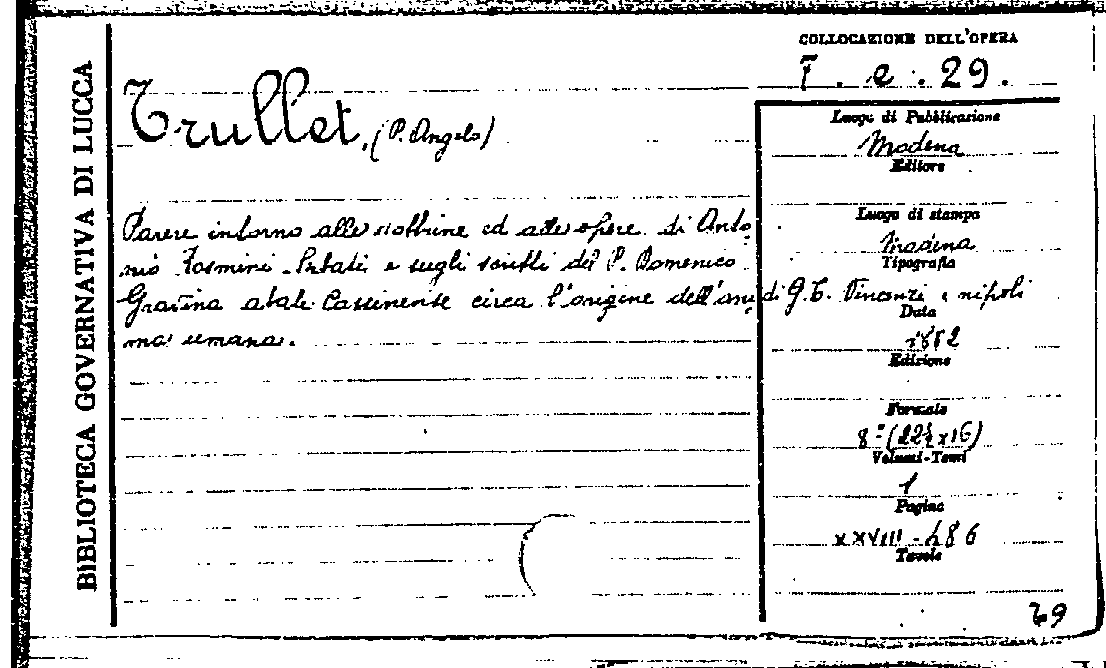 BIBLIOTECA GOVERNATIVA DI LUCCA
COLLOCAZIONE DELL'OPERA
F. e. 29.
Trullet, (P. Angelo)
Parere intorno alle dottrine ed alle opere di Anto-
nio Rosmini-Serbati e sugli scritti del P. Domenico
Gravina abate Cassinense circa l'origine dell'ani-
ma umana.
Luogo di Pubblicazione
Modena
Editore
Luogo di stampa
Modena
Tipografia
di G. T. Vincenzi e nipoti
Data
1882
Edizione
Formato
8º (22½x16)
Volumi-Tomi
1
Pagine
XXVIII-486
Tavole
29